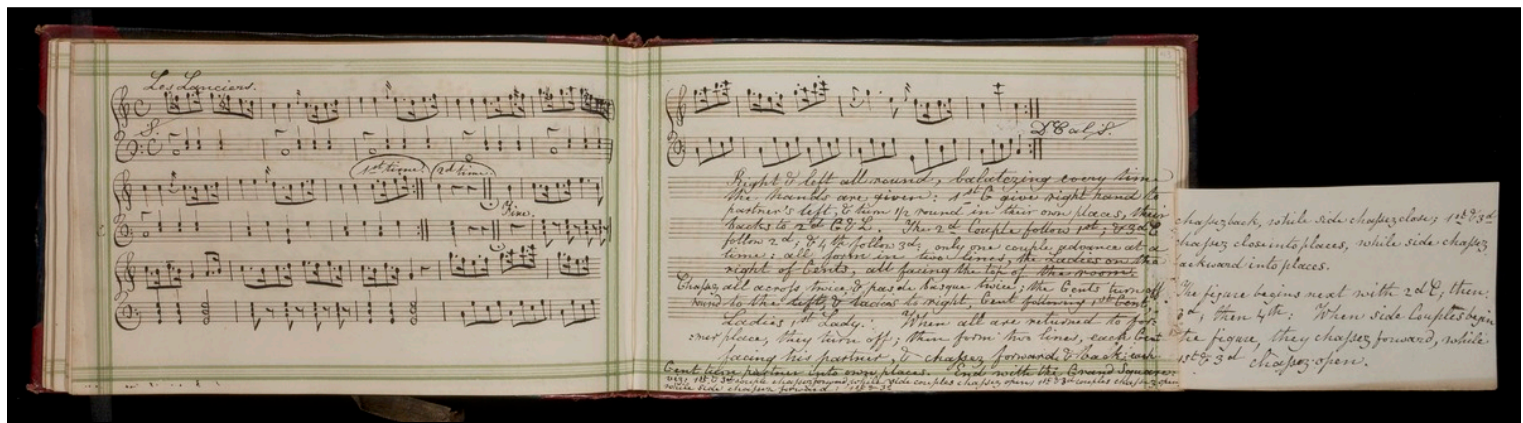 Les Lanciers.
S.
1st time. 2d time.
Fine.
D.C al S.
Right & left all round, balatezing every time
the hands are given: 1st C give right hand to
partner's left, & turn 1/2 round in their own places, their
backs to 2d C & L. The 2d Couple follow 1st, & 3d C
follow 2d, & 4th follow 3d, only one couple advance at a
time: all form in two lines, the Ladies on the
right of Gents, all facing the top of the room.
Chapez all across twice, & pas de basque twice; the Gents turn off
round to the left, & Ladies to right, Gent following 1st Gent,
Ladies 1st Lady. When all are returned to for-
mer place, they turn off; then form two lines, each Gent
facing his partner, & chapez forward & back; each
Gent turn partner into own places. End with the Grand Square:
viz: 1st & 3d couple chapez forward, while side couples chapez open; 1st & 3d couples chapez open
while side chapez forward: 1st & 3d
chapez back, while side chapez close; 1st & 3d
chapez close into places, while side chapez
backward into places.
The figure begins next with 2d C, then
3d, then 4th: When side Couples begin
the figure, they chapez forward, while
1st & 3d chapez open.